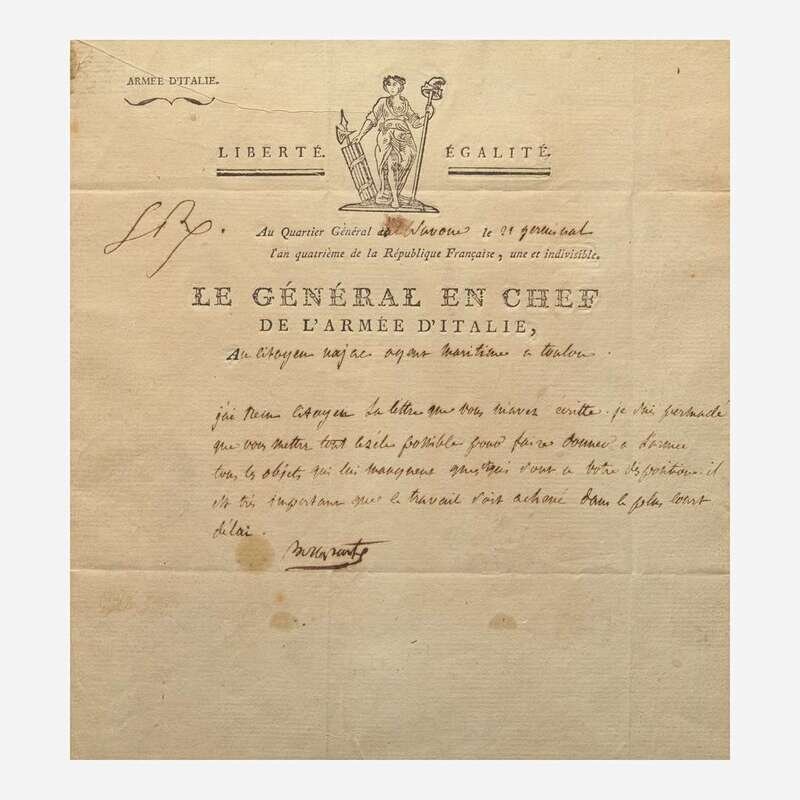 ARMÉE D'ITALIE.
LIBERTÉ. ÉGALITÉ.
Au Quartier Général de Savone le 21 germinal
l'an quatrième de la République Française, une et indivisible.
LE GÉNÉRAL EN CHEF
DE L'ARMÉE D'ITALIE,
Au Citoyen najac agent maritime a toulon.
j'ai recu Citoyen La lettre que vous m'avez écritte. je suis persuadé
que vous mettez tout le zèle possible pour faire donner a L'armée
tous les objets qui lui manquent qui sont a votre disposition. il
est très important que le travail soit achevé dans le plus court
délai.
Bonaparte